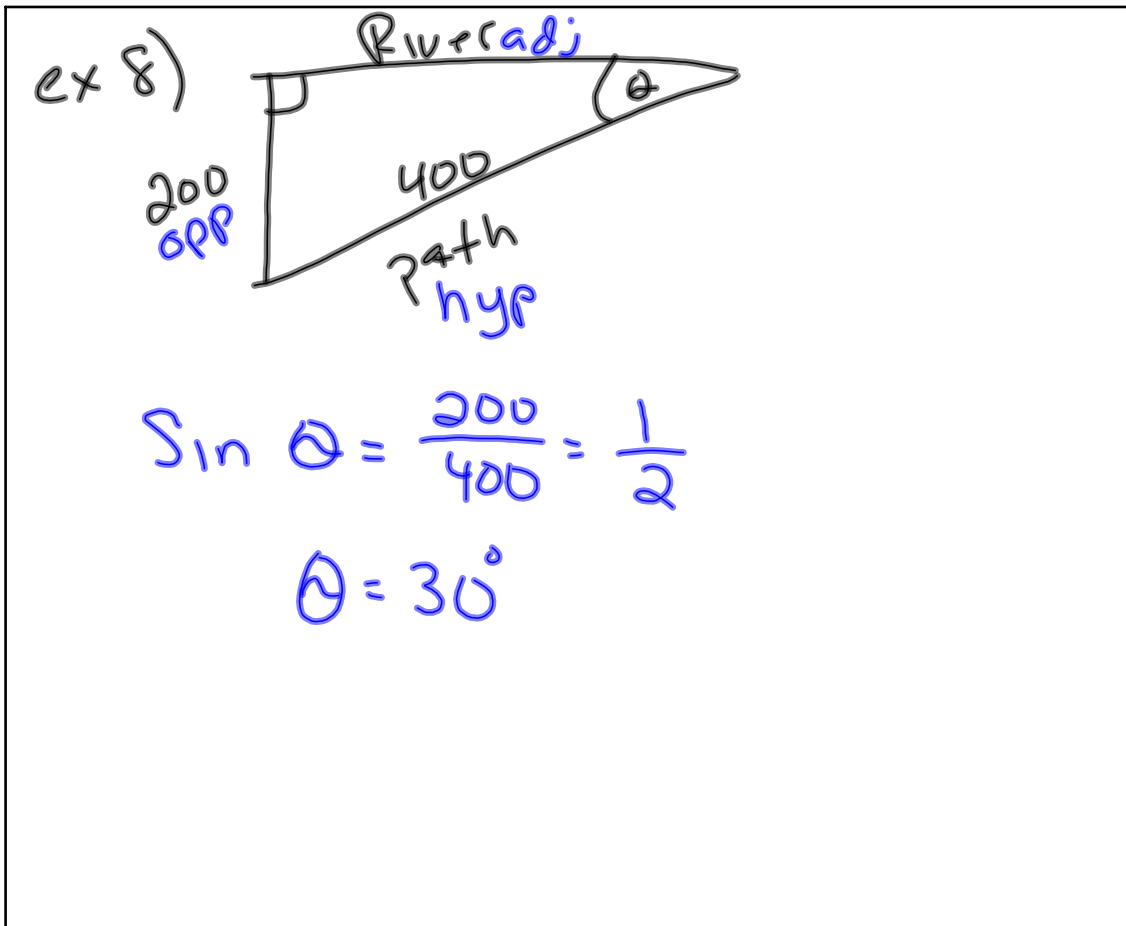 ex 8)
River adj
θ
200
opp
400
path
hyp
Sin θ = 200/400 = 1/2
θ = 30°